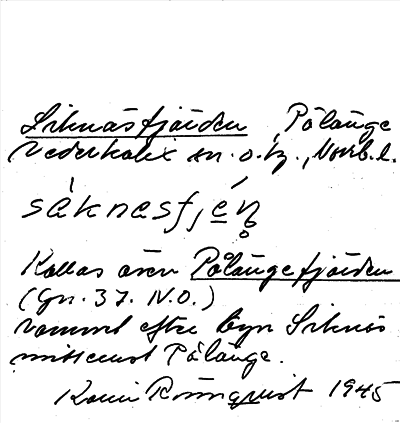 Siknäsfjärden, Pålänge
Nederkalix sn. o. tg., Norrb. l.
sèknæsfjéṇ
Kallas även Pålängefjärden
(Gn. 37. N.O.)
namnet efter byn Siknäs
mittemot Pålänge.
Karin Rönnquist 1945